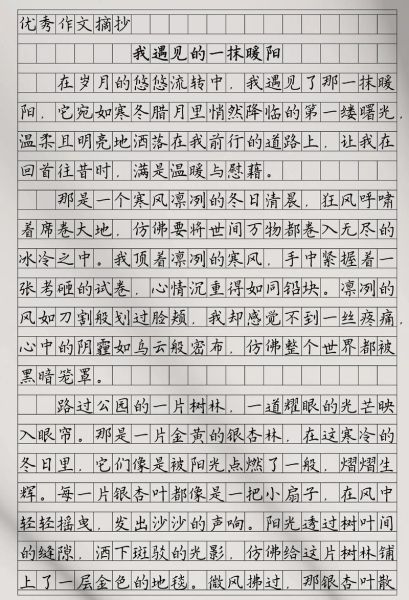 优秀作文摘抄
我遇见的一抹暖阳
在岁月的悠悠流转中，我遇见了那一抹暖
阳，它宛如寒冬腊月里悄然降临的第一缕曙光，
温柔且明亮地洒落在我前行的道路上，让我在
回首往昔时，满是温暖与慰藉。
那是一个寒风凛冽的冬日清晨，狂风呼啸
着席卷大地，仿佛要将世间万物都卷入无尽的
冰冷之中。我顶着凛冽的寒风，手中紧握着一
张考砸的试卷，心情沉重得如同铅块。凛冽的
风如刀割般划过脸颊，我却感觉不到一丝疼痛，
心中的阴霾如乌云般密布，仿佛整个世界都被
黑暗笼罩。
路过公园的一片树林，一道耀眼的光芒映
入眼帘。那是一片金黄的银杏林，在这寒冷的
冬日里，它们像是被阳光点燃了一般，熠熠生
辉。每一片银杏叶都像是一把小扇子，在风中
轻轻摇曳，发出沙沙的声响。阳光透过树叶间
的缝隙，洒下斑驳的光影，仿佛给这片树林铺
上了一层金色的地毯。微风拂过，那银杏叶散